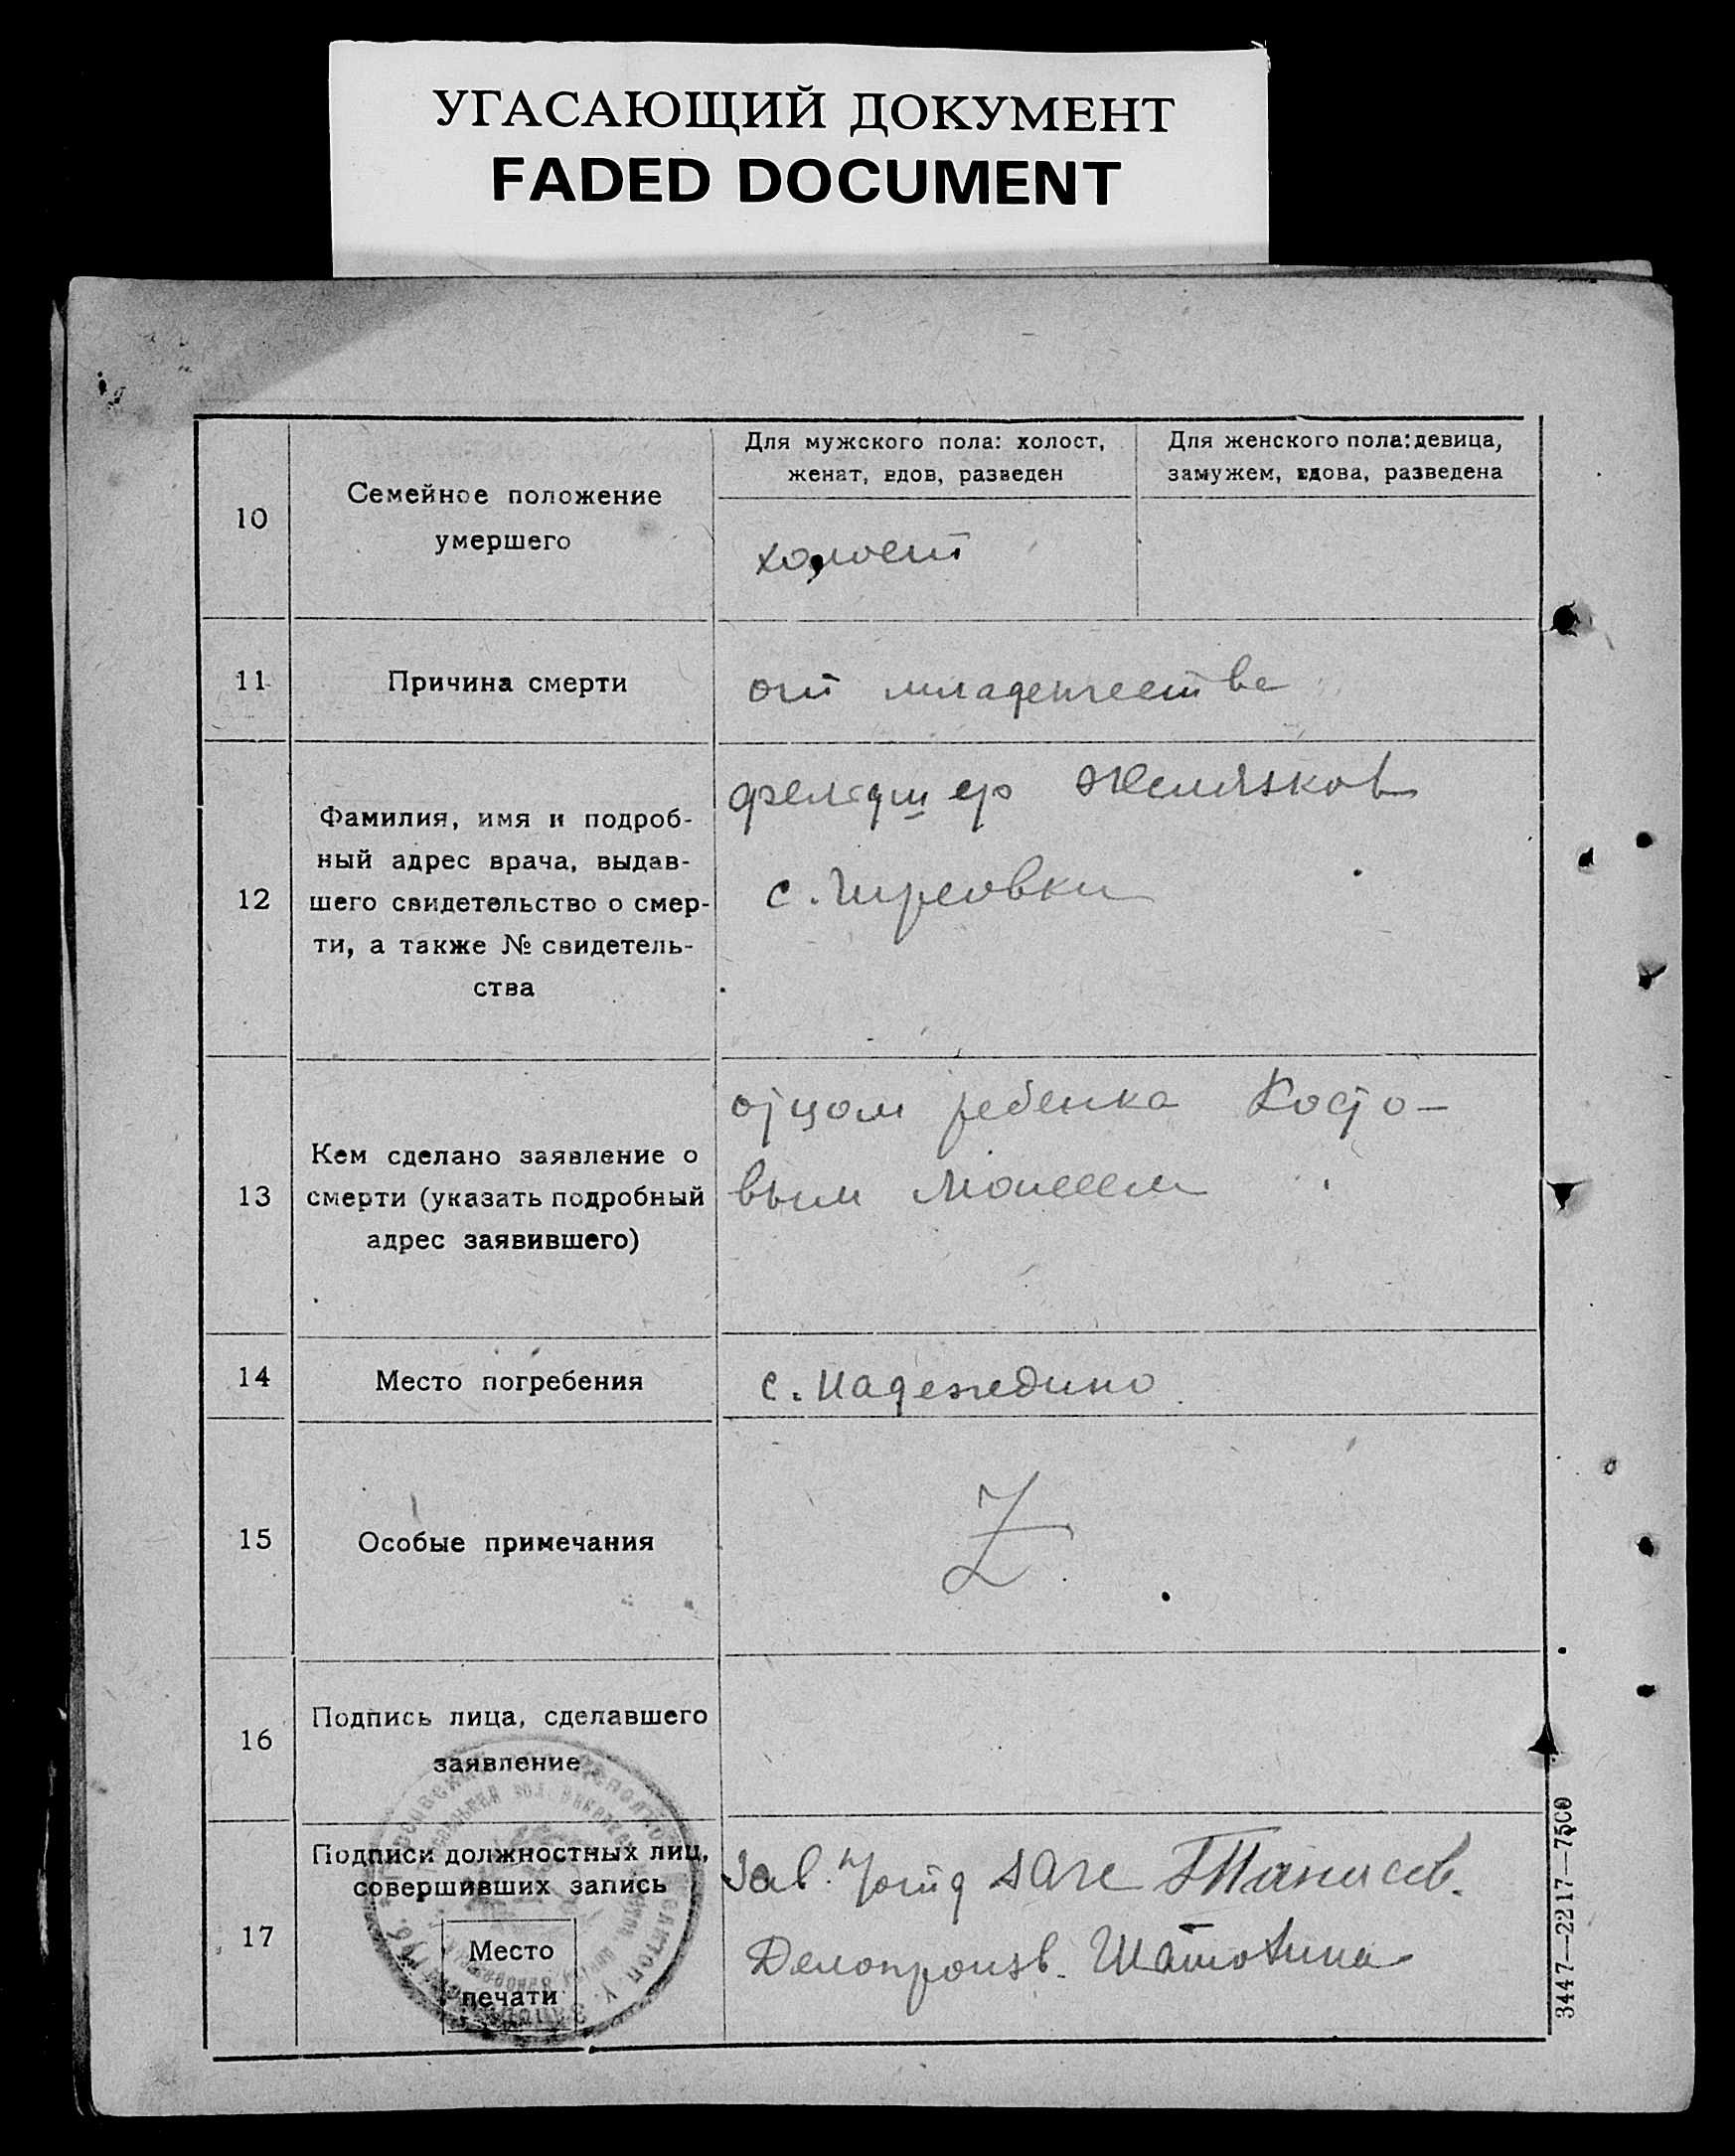 УГАСАЮЩИЙ ДОКУМЕНТ
FADED DOCUMENT
10
Семейное положение
умершего
Для мужского пола: холост,
женат, вдов, разведен
Для женского пола: девица,
замужем, вдова, разведена
холост
11
Причина смерти
от младенчества
12
Фамилия, имя и подроб-
ный адрес врача, выдав-
шего свидетельство о смер-
ти, а также № свидетель-
ства
фельдшер Желязков
с.
13
Кем сделано заявление о
смерти (указать подробный
адрес заявившего)
отцом ребенка Косто-
вым Моисеем
14
Место погребения
с. Надеждино
15
Особые примечания
Z
16
Подпись лица, сделавшего
заявление
17
Подписи должностных лиц,
совершивших запись
Место
печати
Зав.
Делопроизв.
3447—2217—7500